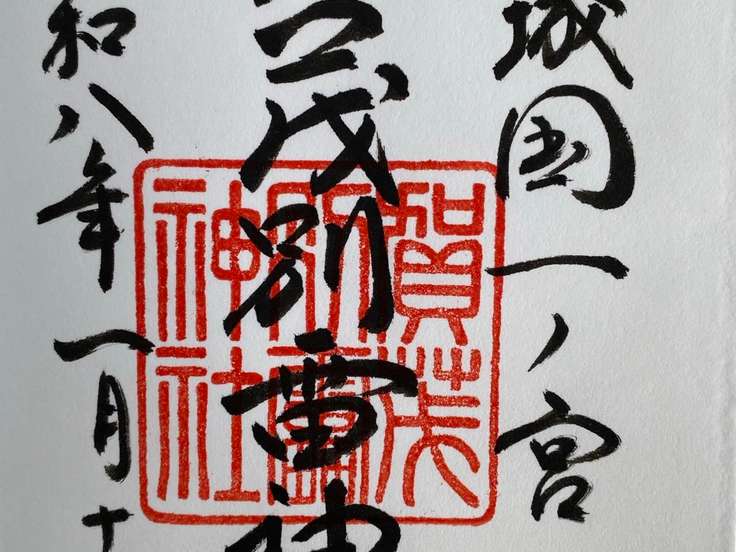 城国一ノ宮
茂別雷神
和八年一月十
賀茂
別雷
神社